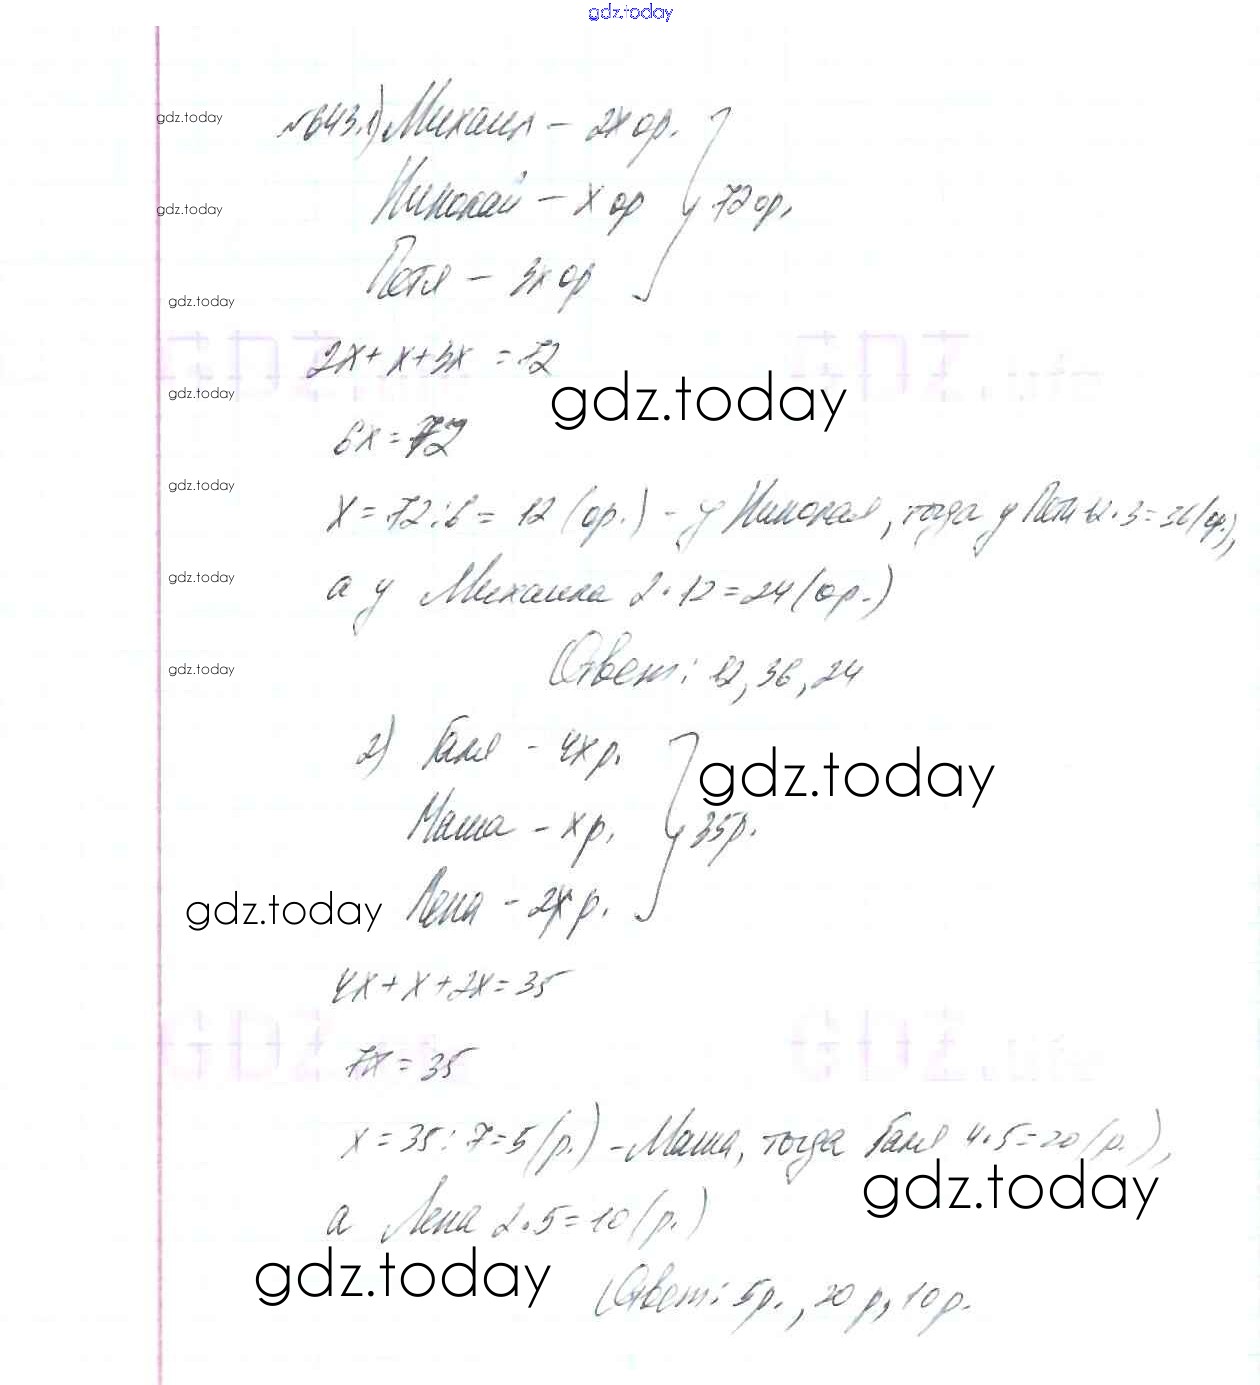 gdz.today
gdz.today
№643.1) Михаил - 2х ор.
gdz.today
Николай - х ор } 72 ор.
gdz.today
Петя - 3х ор
2х + х + 3х = 72
gdz.today
gdz.today
6х = 72
gdz.today
х = 72 : 6 = 12 (ор.) - у Николая, тогда у Пети 12 · 3 = 36 (ор.),
gdz.today
а у Михаила 2 · 12 = 24 (ор.)
gdz.today
Ответ: 12, 36, 24
2) Галя - 4х р.
gdz.today
Маша - х р. } 35 р.
gdz.today
Лена - 2х р.
4х + х + 2х = 35
7х = 35
х = 35 : 7 = 5 (р.) - Маша, тогда Галя 4 · 5 = 20 (р.),
gdz.today
а Лена 2 · 5 = 10 (р.)
gdz.today
Ответ: 5 р., 20 р, 10 р.